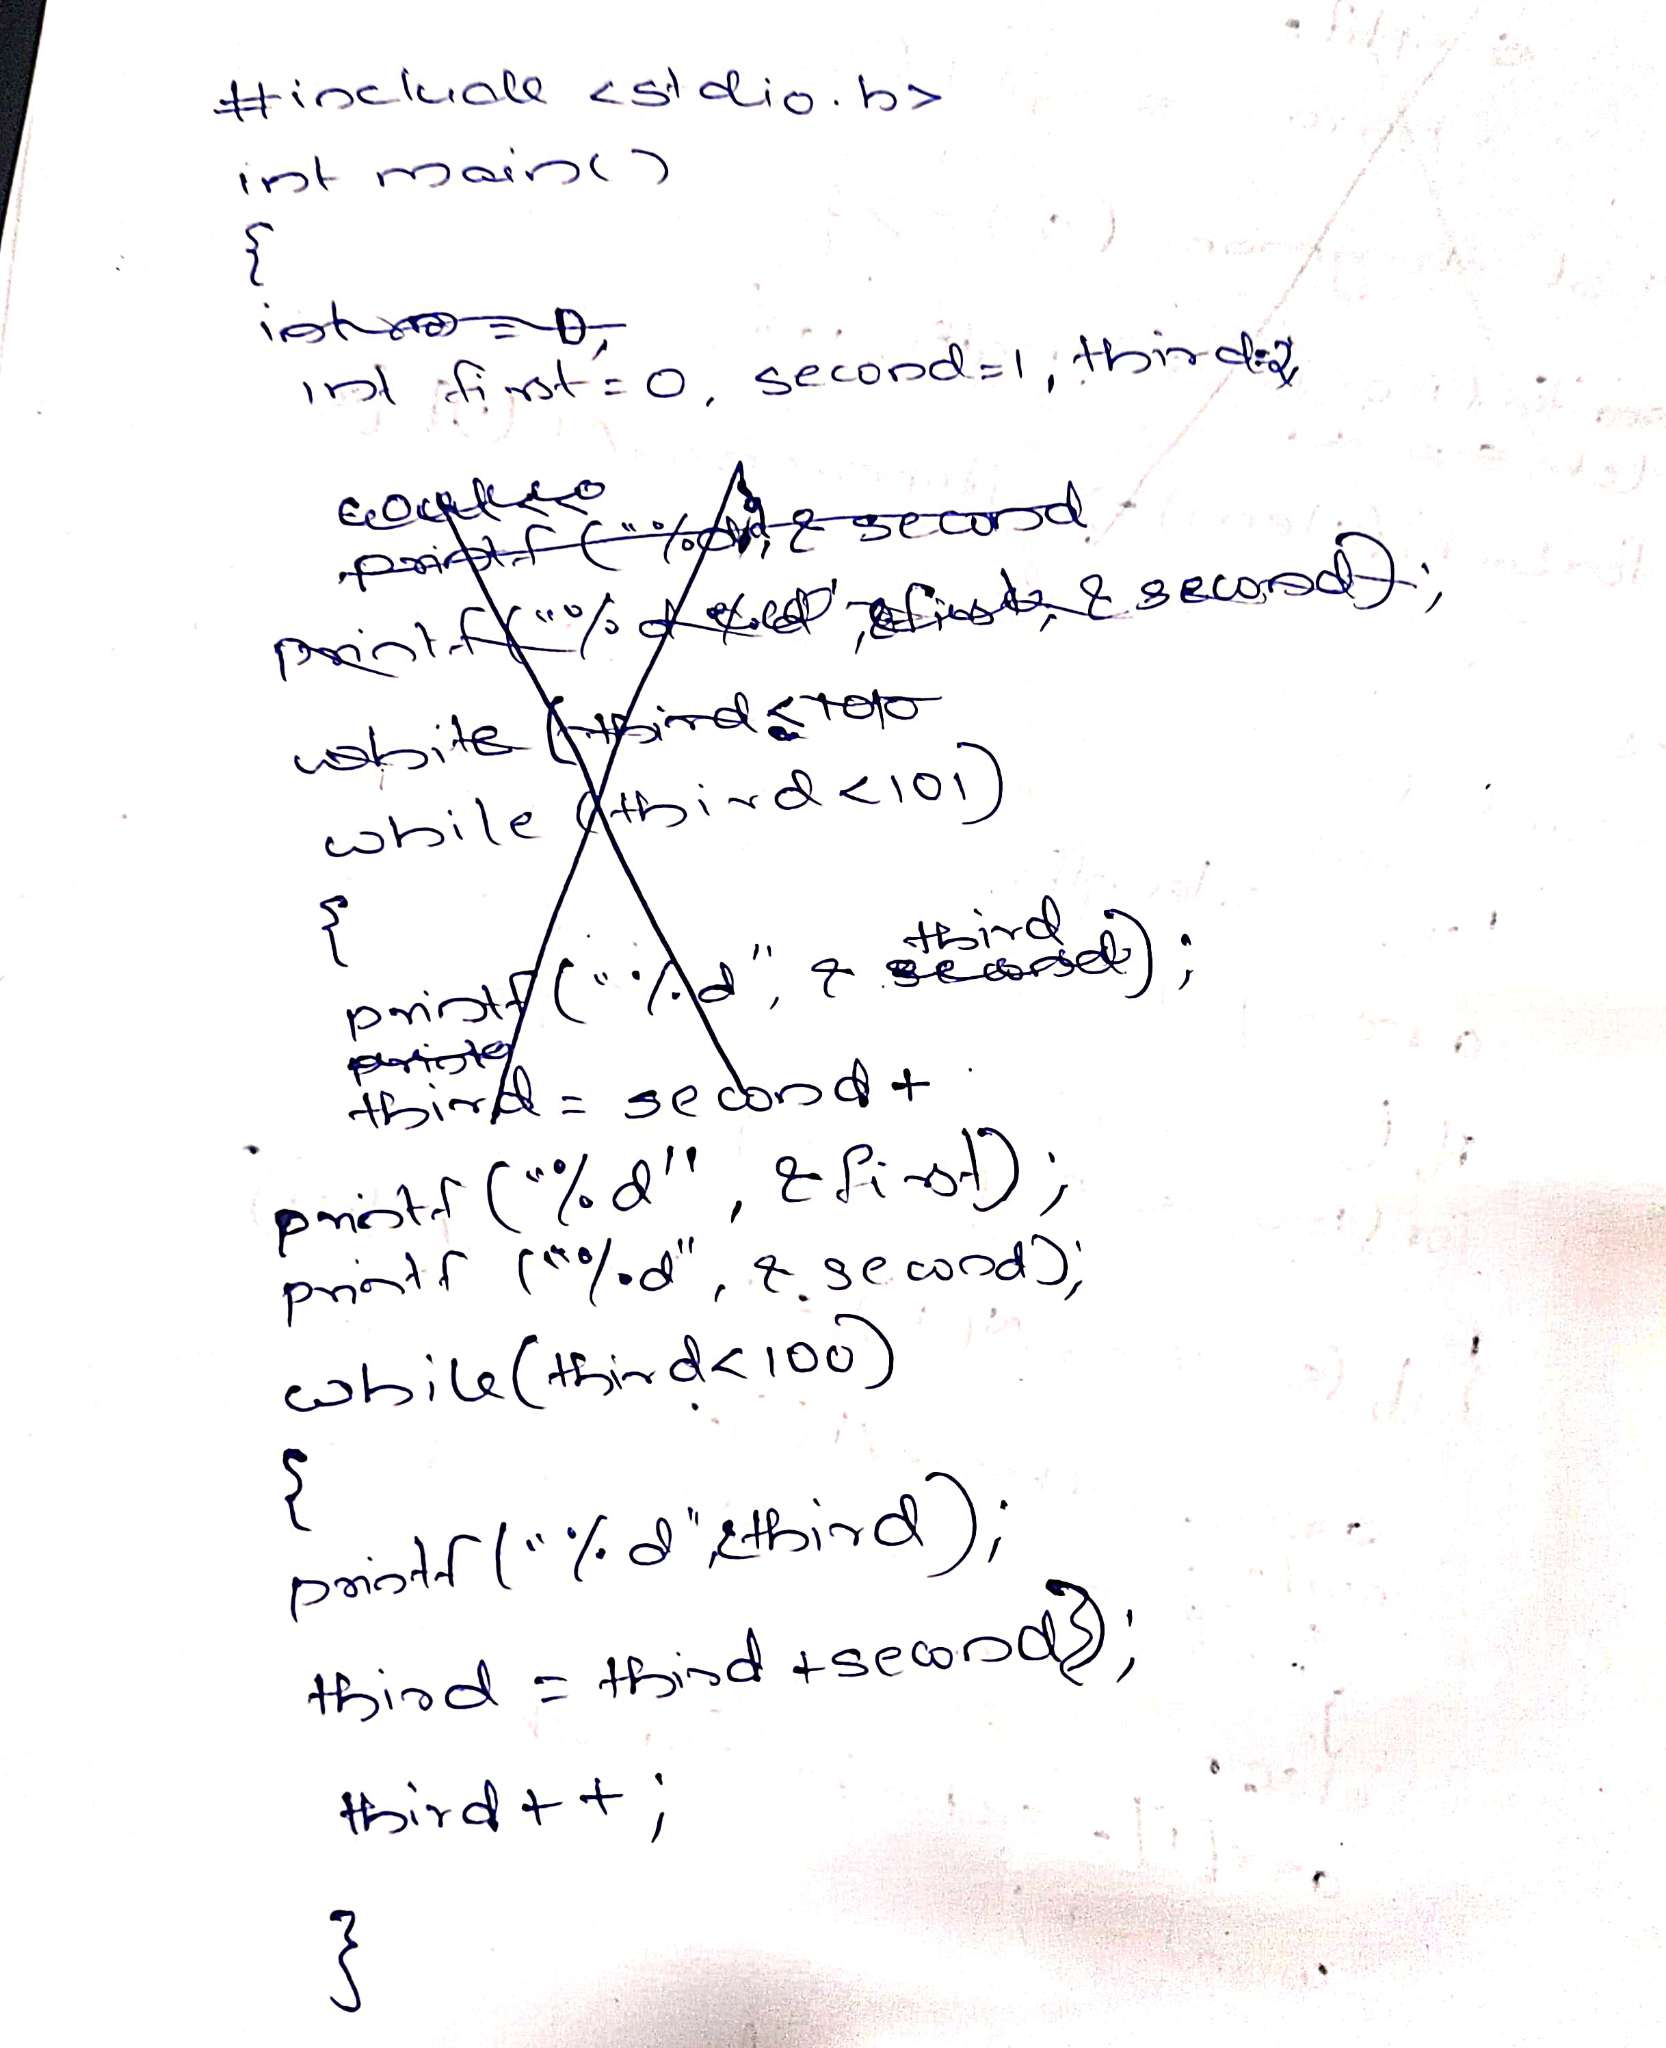 #include <stdio.h>
int main()
{
int = 0;
int first = 0, second=1, third=2,
printf ("%d", & second
printf ("%d , &first, & second);
while (third <
while (third <101)
{
printf ("%d", & third);
third = second +
printf ("%d", & first);
printf ("%d", & second);
while(third<100)
{
printf("%d",&third);
third = third +second);
third++;
}